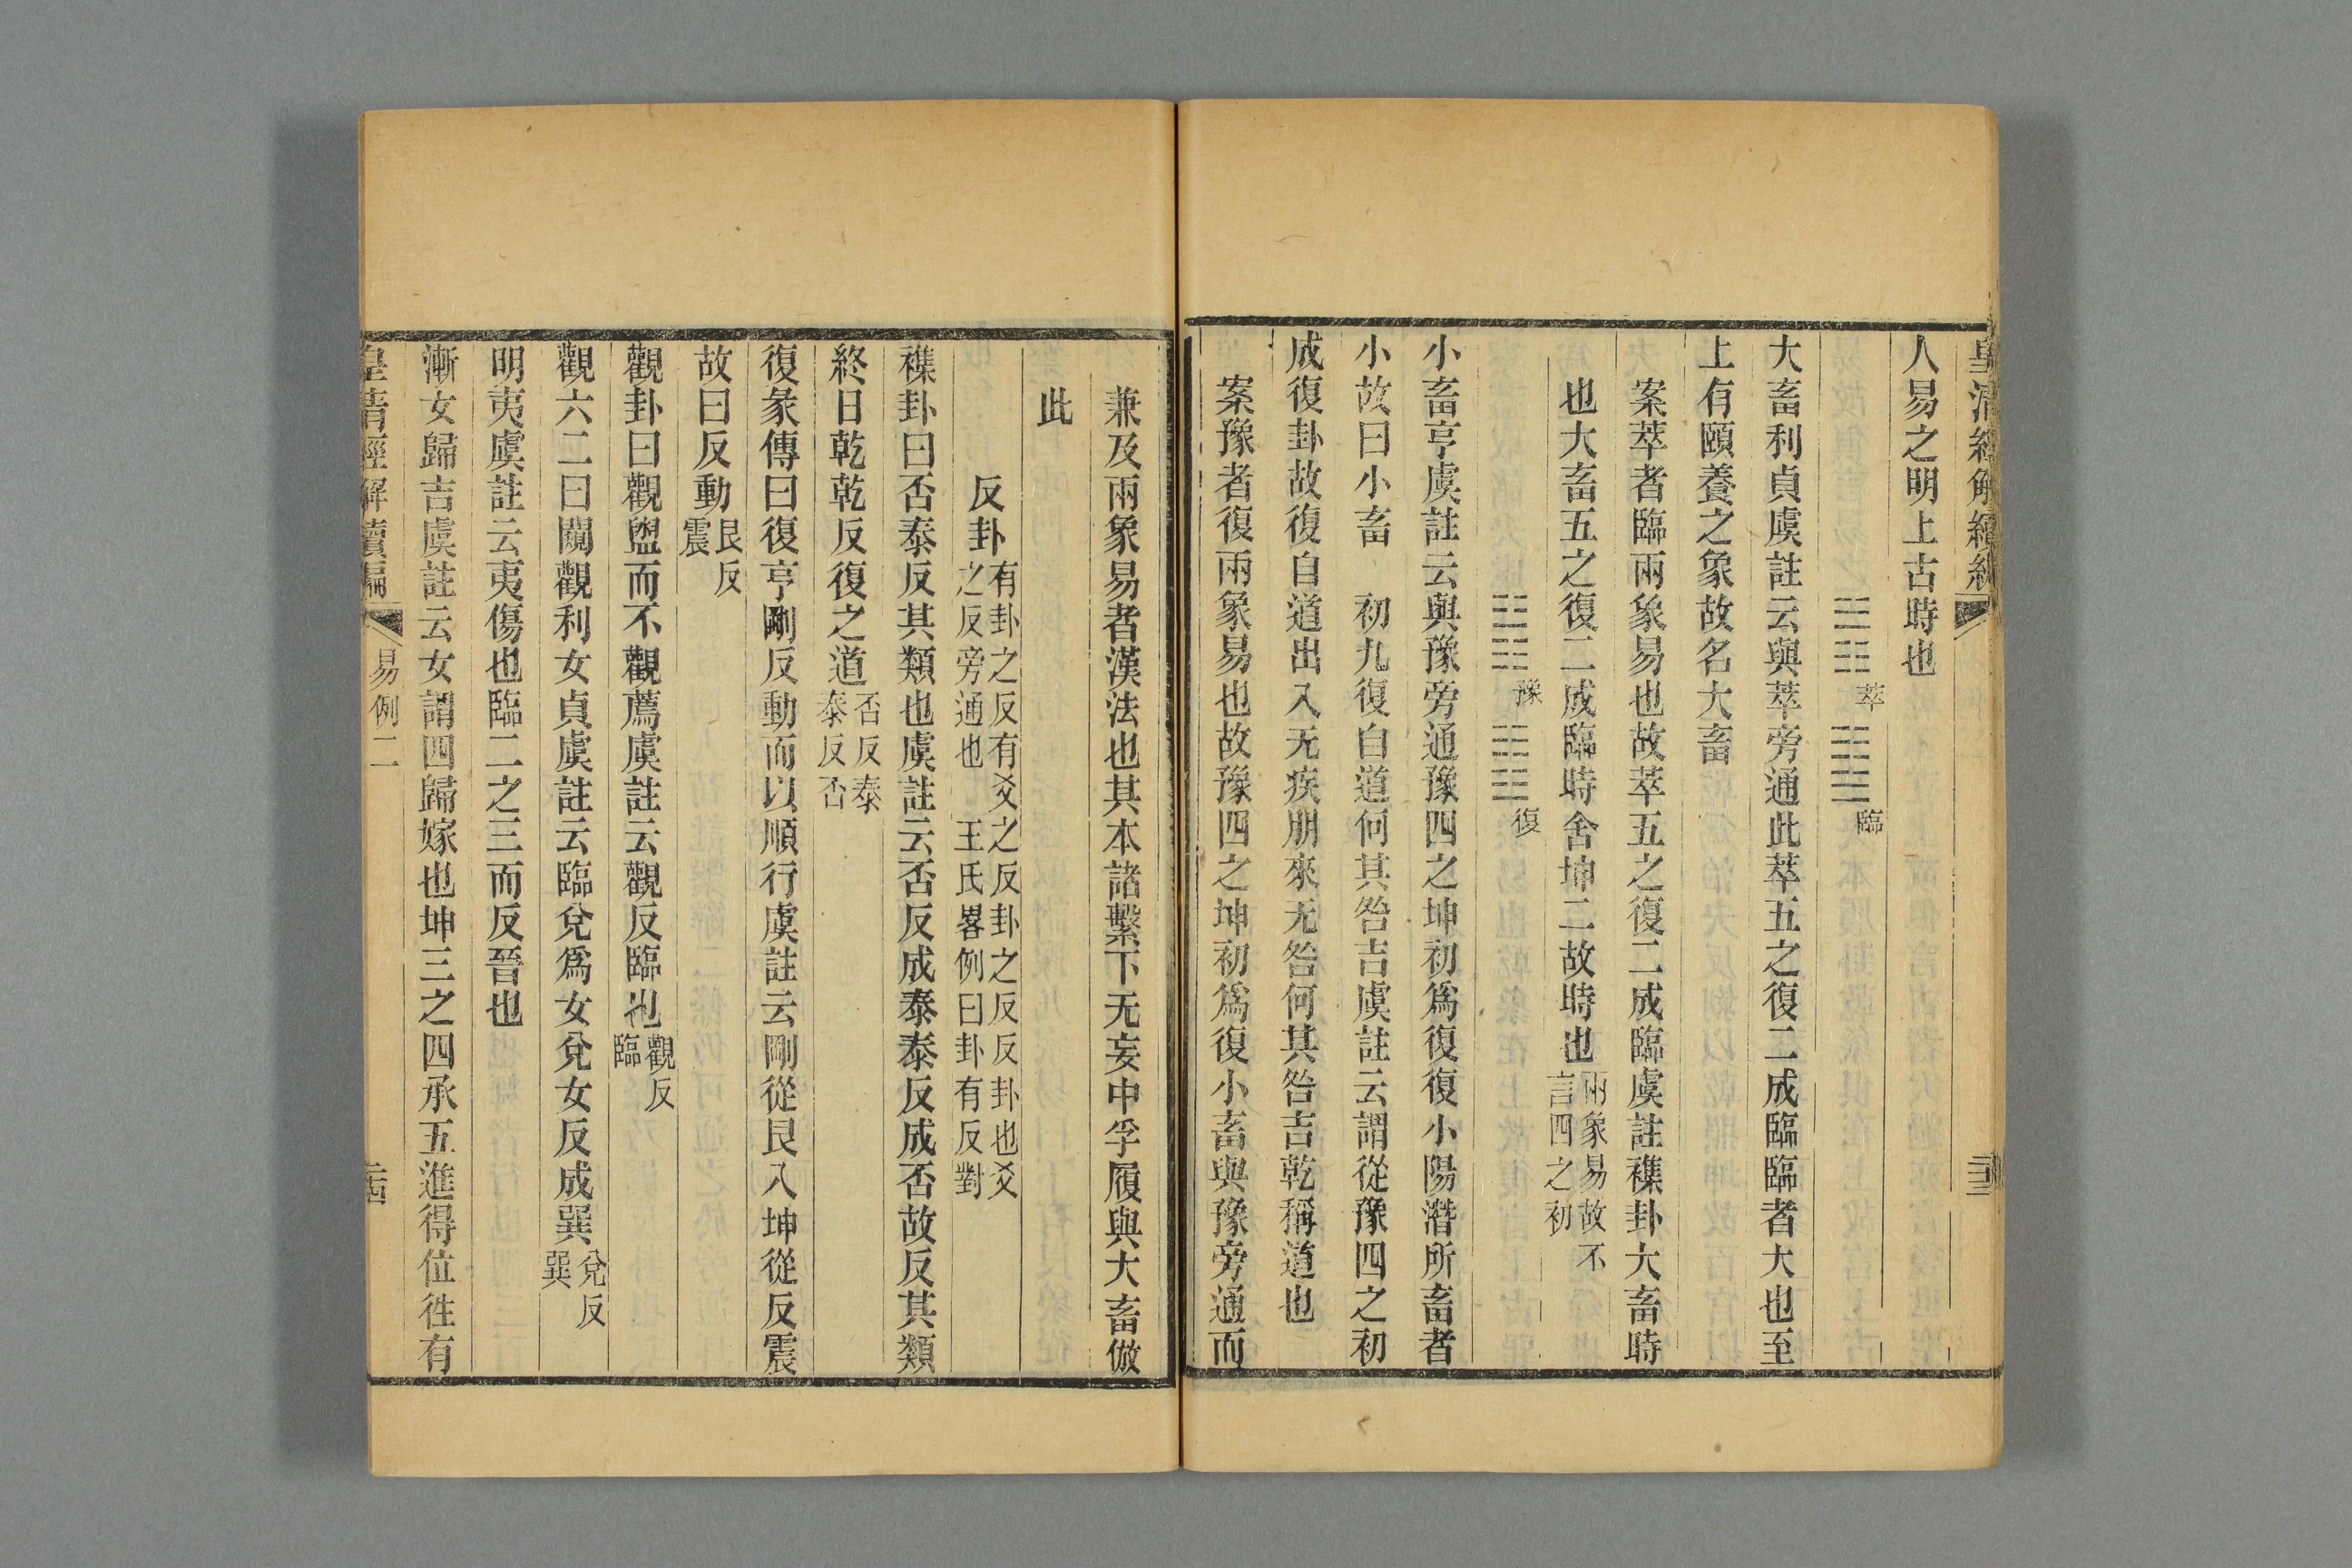 皇清經解續編
三三
人易之明上古時也
䷬萃䷒臨
大畜利貞虞註云與萃旁通此萃五之復二成臨臨者大也至
上有頤養之象故名大畜
案萃者臨兩象易也故萃五之復二成臨虞註襍卦大畜時
也大畜五之復二成臨時舍坤二故時也兩象易故不言四之初
䷏豫䷗復
小畜亨虞註云與豫旁通豫四之坤初爲復復小陽潛所畜者
小故曰小畜 初九復自道何其咎吉虞註云謂從豫四之初
成復卦故復自道出入无疾朋來无咎何其咎吉乾稱道也
案豫者復兩象易也故豫四之坤初爲復小畜與豫旁通而
兼及兩象易者漢法也其本諸繫下无妄中孚履與大畜倣
此
反卦有卦之反有爻之反卦之反反卦也爻之反旁通也 王氏畧例曰卦有反對
襍卦曰否泰反其類也虞註云否反成泰泰反成否故反其類
終日乾乾反復之道否反泰泰反否
復彖傳曰復亨剛反動而以順行虞註云剛從艮入坤從反震
故曰反動艮反震
觀卦曰觀盥而不觀薦虞註云觀反臨也觀反臨
觀六二曰闚觀利女貞虞註云臨兌爲女兌女反成巽兌反巽
明夷虞註云夷傷也臨二之三而反晉也
漸女歸吉虞註云女謂四歸嫁也坤三之四承五進得位徃有
皇清經解續編
易例二